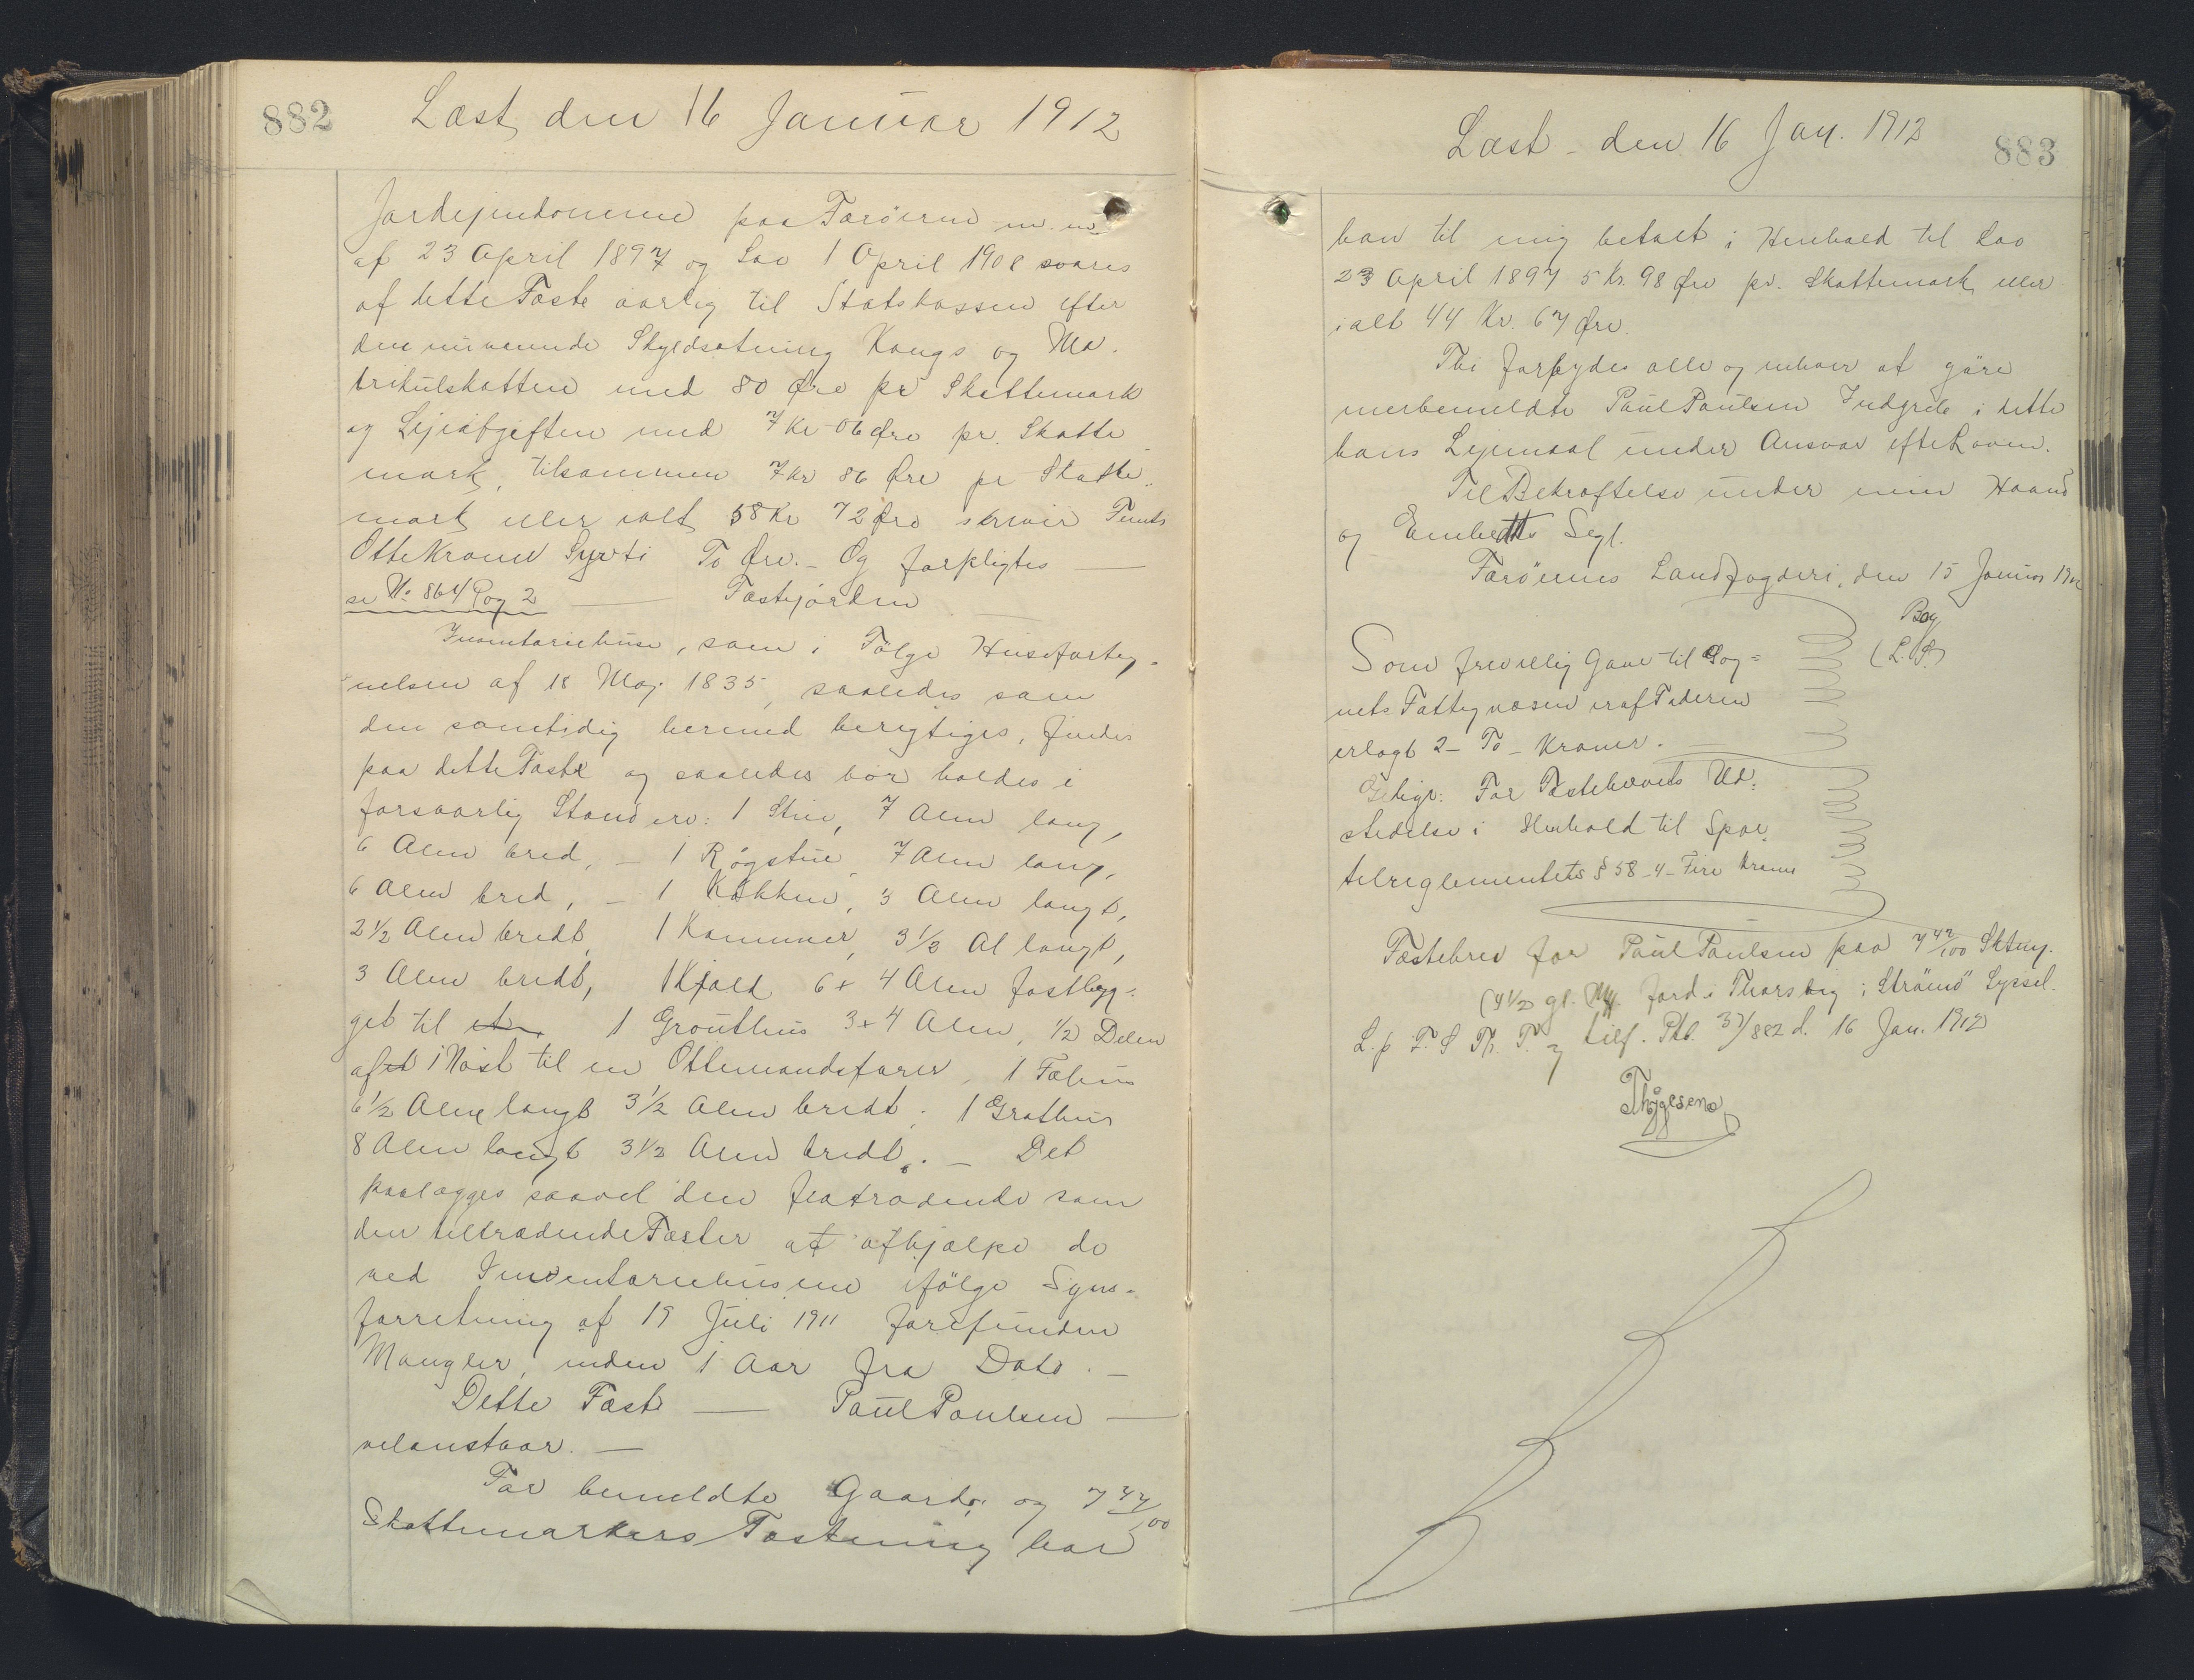 882
Læst den 16 Januar 1912
Jordejendomme paa Færöerne m. m.
af 23 April 1897 og Lov 1 April 1908 svares
af dette Fæste aarlig til Statskassen efter
den nuværende Skyldsætning Kongs og Ma-
trikulskatten med 80 Øre pr Skattemark
og Lejeafgiften med 7 Kr 06 Øre pr. Skatte
mark, tilsammen 7 Kr 86 Øre pr Skatte-
mark eller ialt 58 Kr 72 Øre skriver Femti
Otte Kroner Syvti To Øre. - Og forpligtes —
se No 864 P og 2 — Fæstejorden —
Inventariehuse, som i Følge Husforteg-
nelsen af 18 Maj 1835, saaledes som
den samtidig hermed berigtiges, findes
paa dette Fæste og saaledes bör holdes i
forsvarlig Stand ere: 1 Stue, 7 Alen lang,
6 Alen bred, - 1 Røgstue, 7 Alen lang,
6 Alen bred, - 1 Køkken, 3 Alen langt,
2½ Alen bredt, 1 Kammer, 3½ Al langt,
3 Alen bredt, 1 Hjald 6 x 4 Alen fastbyg-
get til 1 Grouthus 3 x 4 Alen, ½ Delen
af et 1 Nöst til en Ottemandsfarer, 1 Fæhus
6½ Alen langt 3½ Alen bredt; 1 Grathus
8 Alen langt 3½ Alen bredt. - Det
paalægges saavel den fratrædende som
den tiltrædende Fæster at afhjælpe de
ved Inventariehusene ifölge Syns-
forretning af 19 Juli 1911 forefundne
Mangler, inden 1 Aar fra Dato. -
Dette Fæste — Paul Poulsen —
velanstaar. —
For bemeldte Gaards og 7 47/100
Skattemarkers Fæstning har
Læst - den 16 Jan. 1912
883
han til mig betalt i Henhold til Lov
23 April 1897 5 Kr. 98 Øre pr. Skattemark eller
ialt 44 Kr. 67 Øre.
Thi forbydes alle og enhver at göre
merbemeldte Paul Poulsen Indgreb i dette
hans Lejemaal under Ansvar efter Loven.
Til Bekræftelse under min Haand
og Embedets Segl.
Færöernes Landfogderi, den 15 Januar 1912
Bay
(L. S.)
Som frivillig Gave til Sog-
nets Fattigvæsen er af Fæsteren
erlagt 2 - To - Kroner.
Gebyr: For Fæstebrevets Ud-
stedelse i Henhold til Spor-
telreglementets § 58 - 4 - Fire Kroner
Fæstebrev for Paul Poulsen paa 7 47/100 Sktmy.
(4½ gl. Mk. Jord i Thorsvig i Strömö Syssel.
L. p F. S Th. T. og tilf. Ptb. 37/882 d. 16 Jan. 1912
Thygesen